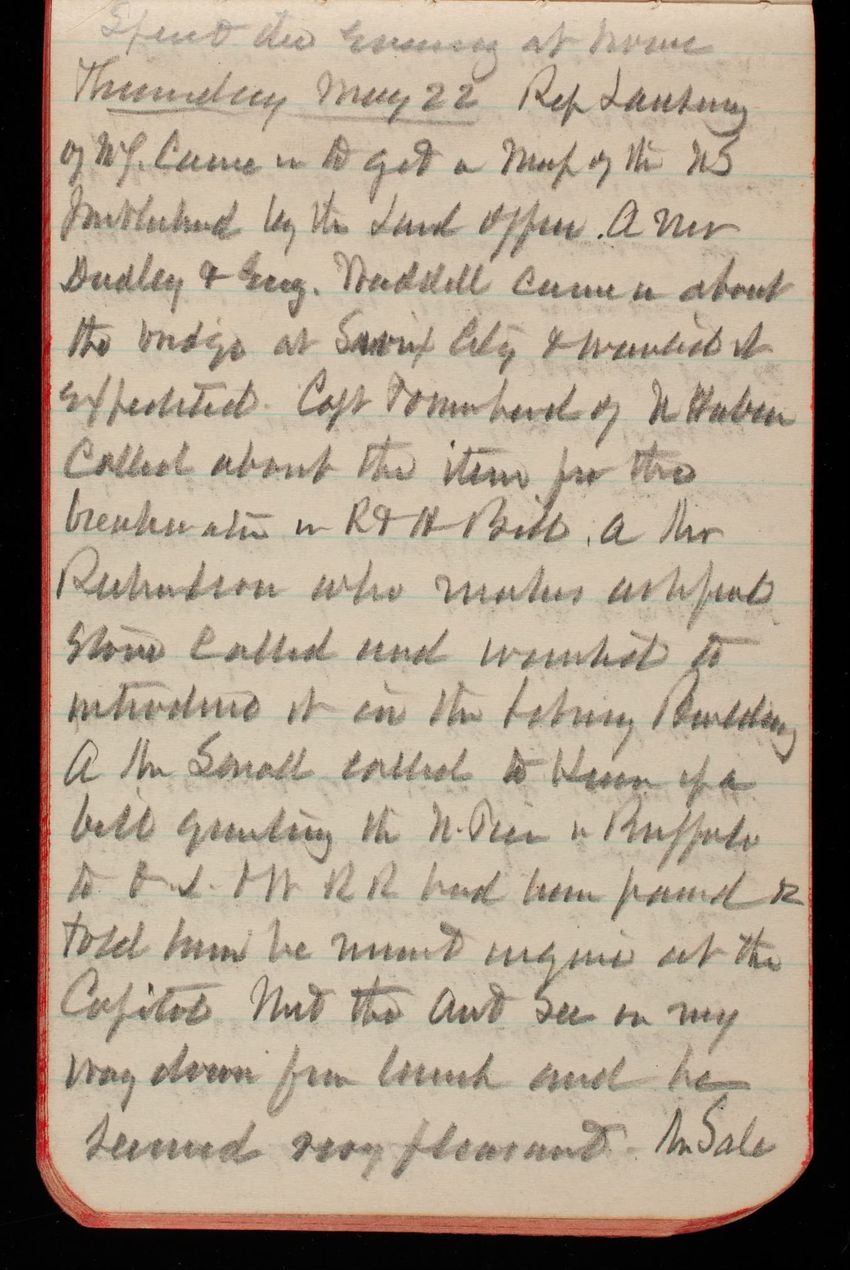 Spent the evening at home
Thursday May 22 Rep Lansing
of N.Y. Came in to get a Map of the US
published by the Land Office. A Mr
Dudley & Eng. Waddell came in about
the bridge at Sioux City & wanted it
expedited. Capt Townshend of N Haven
Called about the item for the
breakwater in R & H Bill. A Mr
Richardson who makes asphalt
Stone Called and wanted to
introduce it in the Library Building
A Mr Small called to Know if a
bill granting the N. Pier in Buffalo
to D. L. & W R R had been passed &
told him he must inquire at the
Capitol Met the Asst Sec on my
way down from lunch and he
seemed very pleasant. Mr Sale